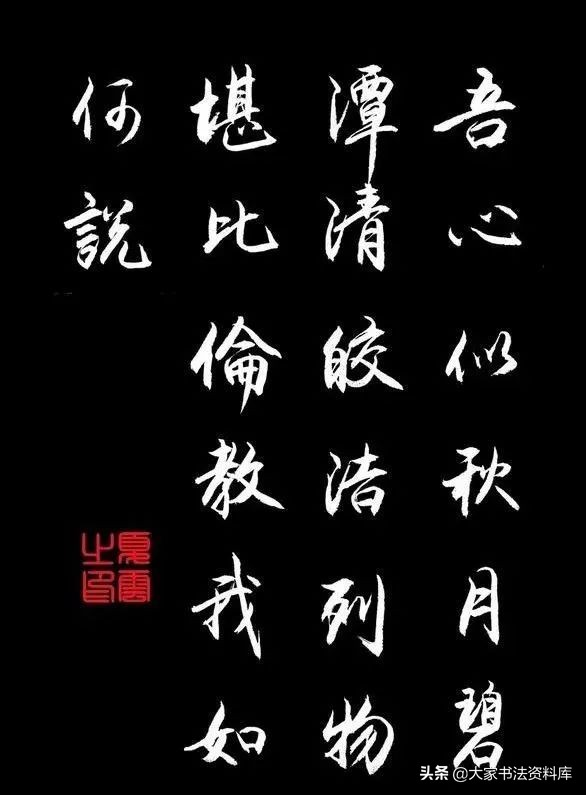 吾心似秋月碧
潭清皎洁列物
堪比倫教我如
何説
夏雲之印
头条 @大家书法资料库